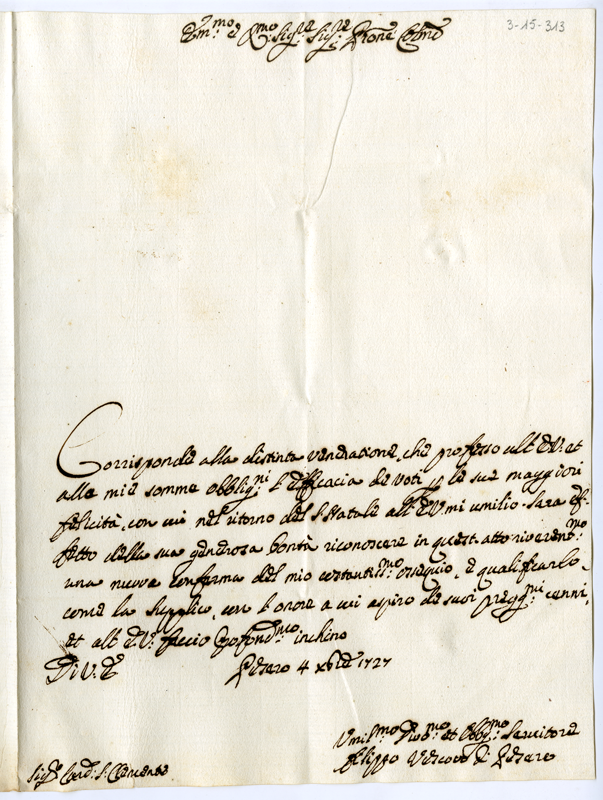 3-15-313
Em.mo e R.mo Sig.re Sig.re Prone Colmo
Corrisponde alla distinta venerazione, che professo all' E.V. et
alle mie somme obblig.ni l'efficacia de voti p le sue maggiori
felicità, con cui nel ritorno del S. Natale all' E.V. mi umilio. Sarà ef-
fetto della sua generosa bontà riconoscere in quest' atto riverent.mo
una nuova conferma del mio costantis.mo ossequio, e qualificarlo,
come la supplico, con l'onore a cui aspiro de suoi preggi.mi cenni,
et all' E.V. faccio profond.mo inchino
Di V.E.
Pesaro 4 Xbre 1727
Umil.mo Div.mo et Obbl.mo Servitore
Filippo Vescovo di Pesaro
Sig.r Card: S. Clemente